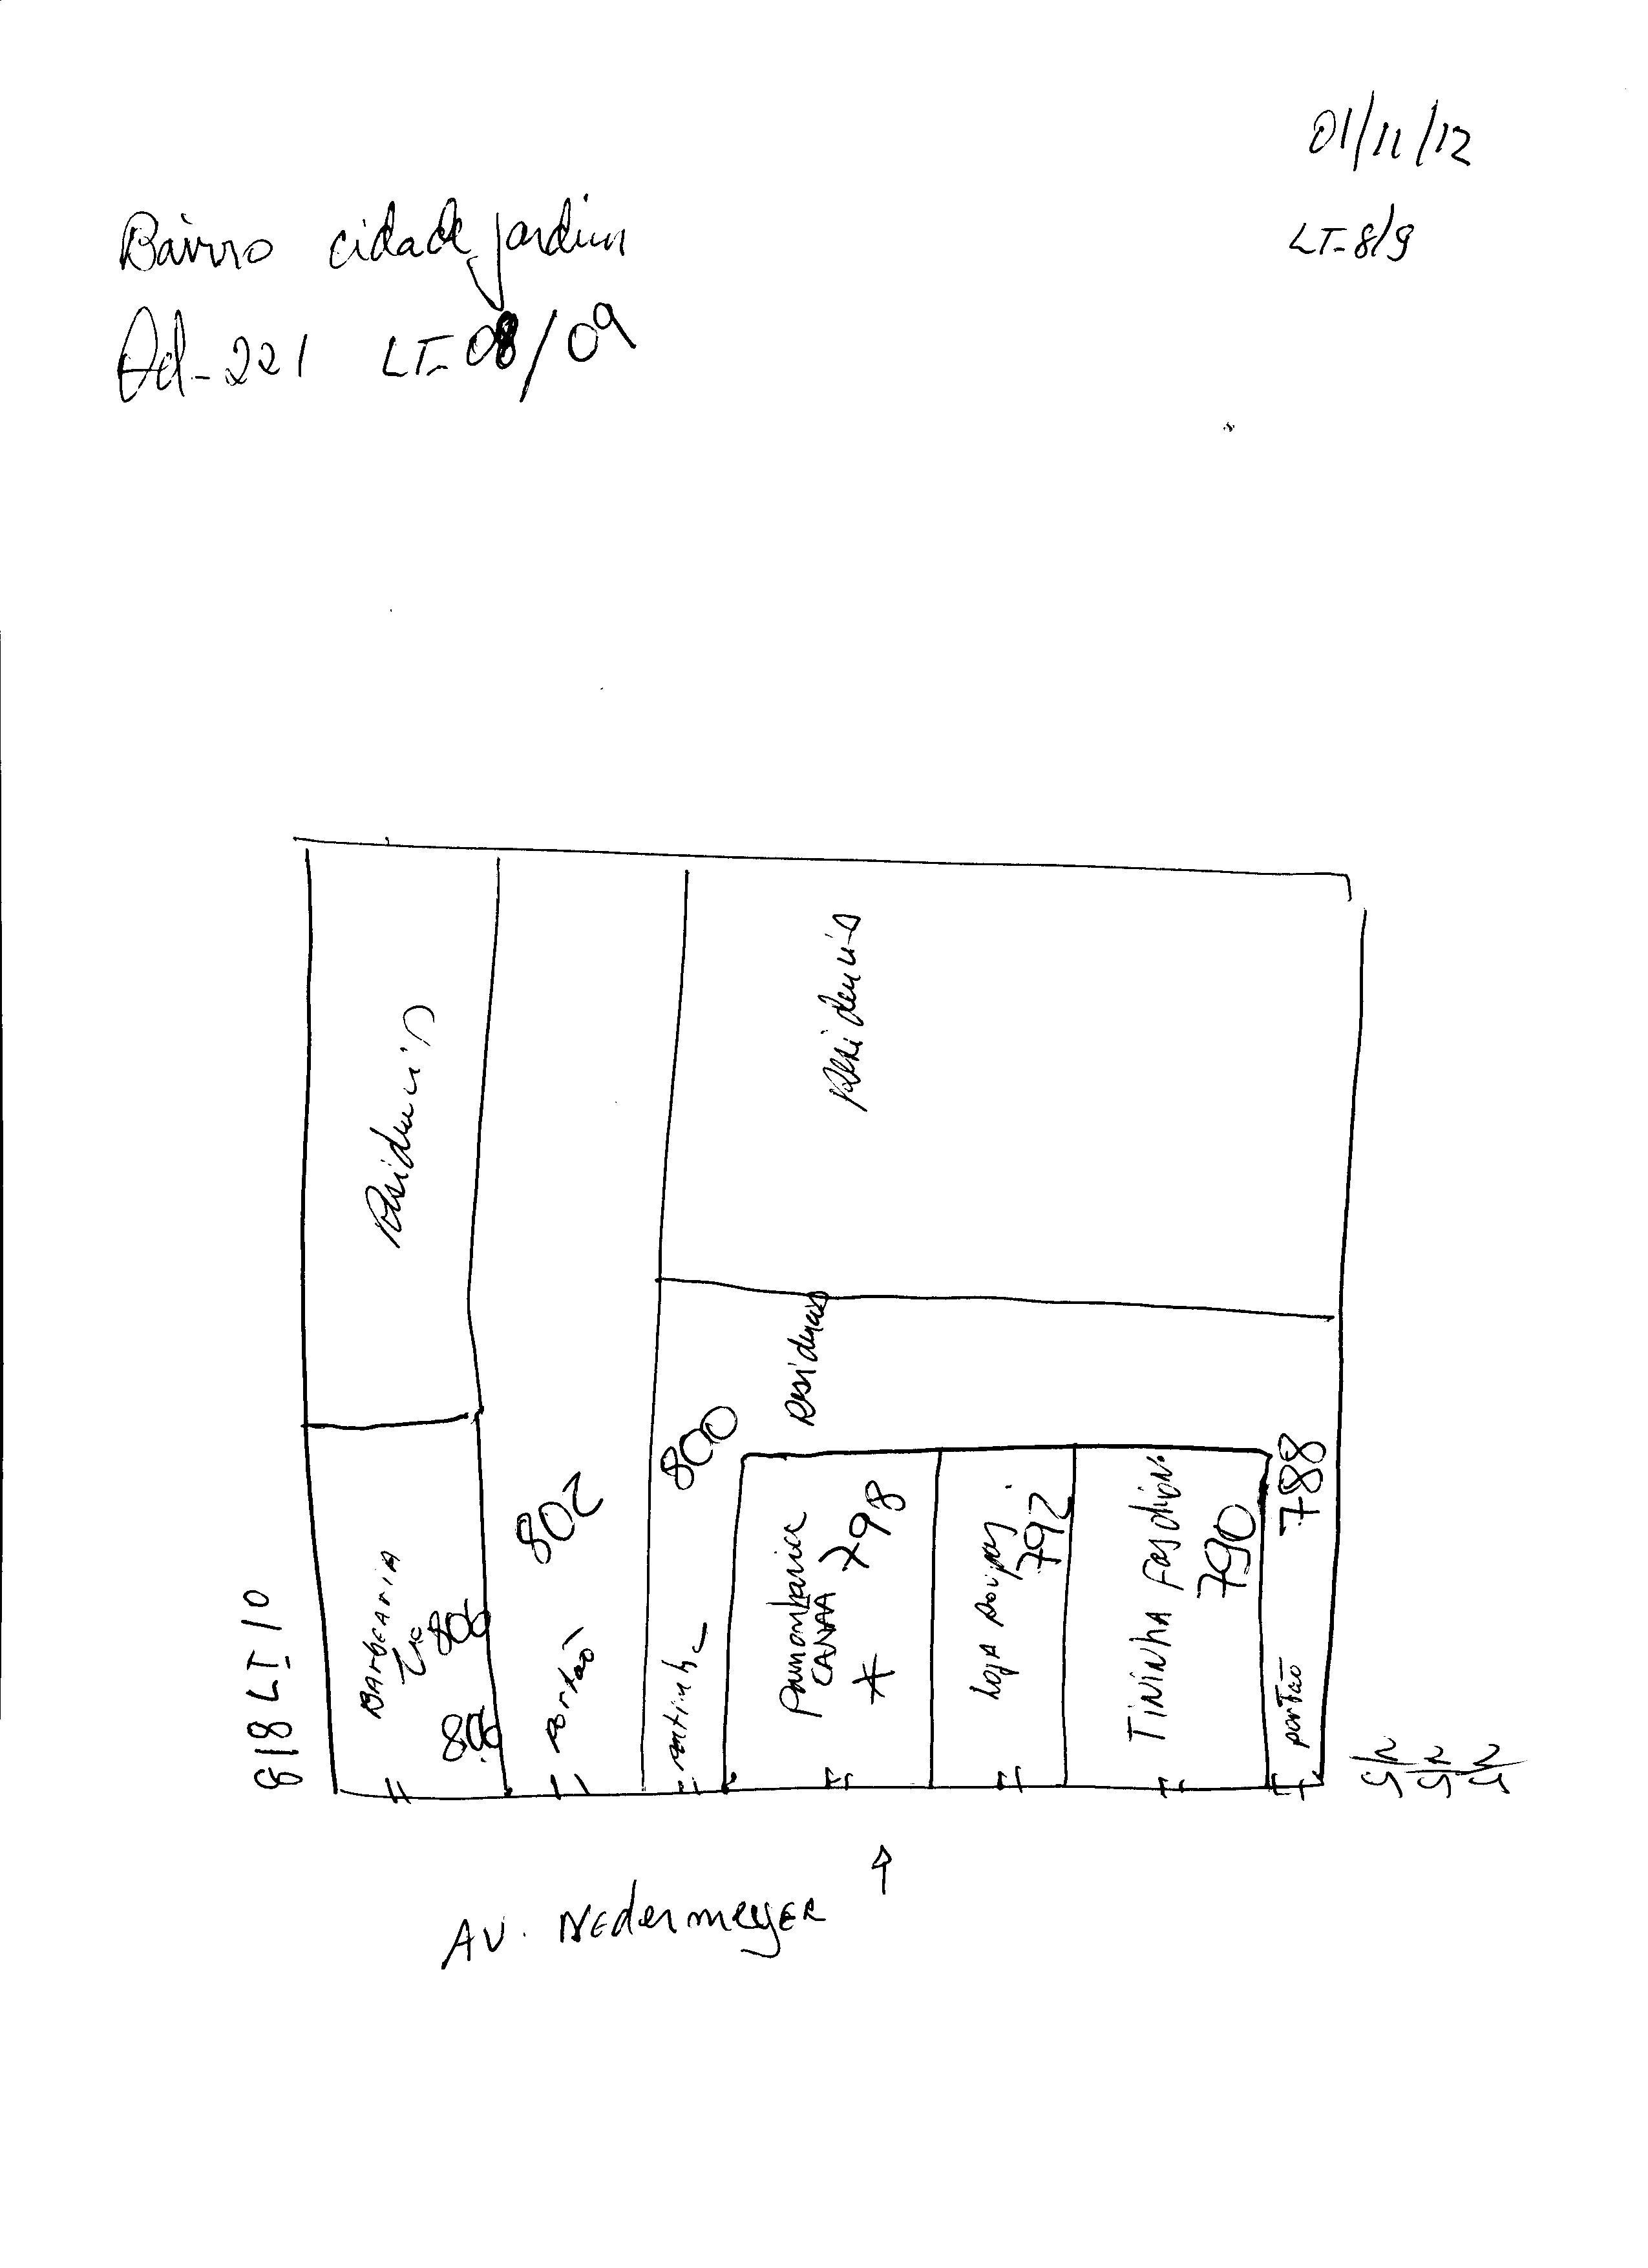 01/11/12
LT-8/9
Bairro cidade jardim
Qd-221 LT-08/09
Residencia
Residencia
Residencia
800
788
802
798
792
790
Barbearia
806
806
portão
Pamonharia
CANAA
Loja Roupas
Tininha Fashion
portão
818 LT 10
AV. Nedermeyer